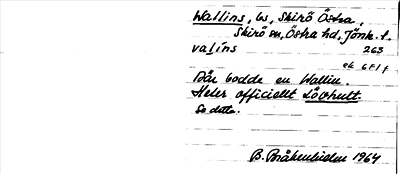 Wallins, ls, Skirö Östra,
Skirö sn, Östra hd, Jönk. l.
valins 263
ek 6F1f
Där bodde en Wallin.
Heter officiellt Lövhult.
Se detta.
B. Bråkenhielm 1964